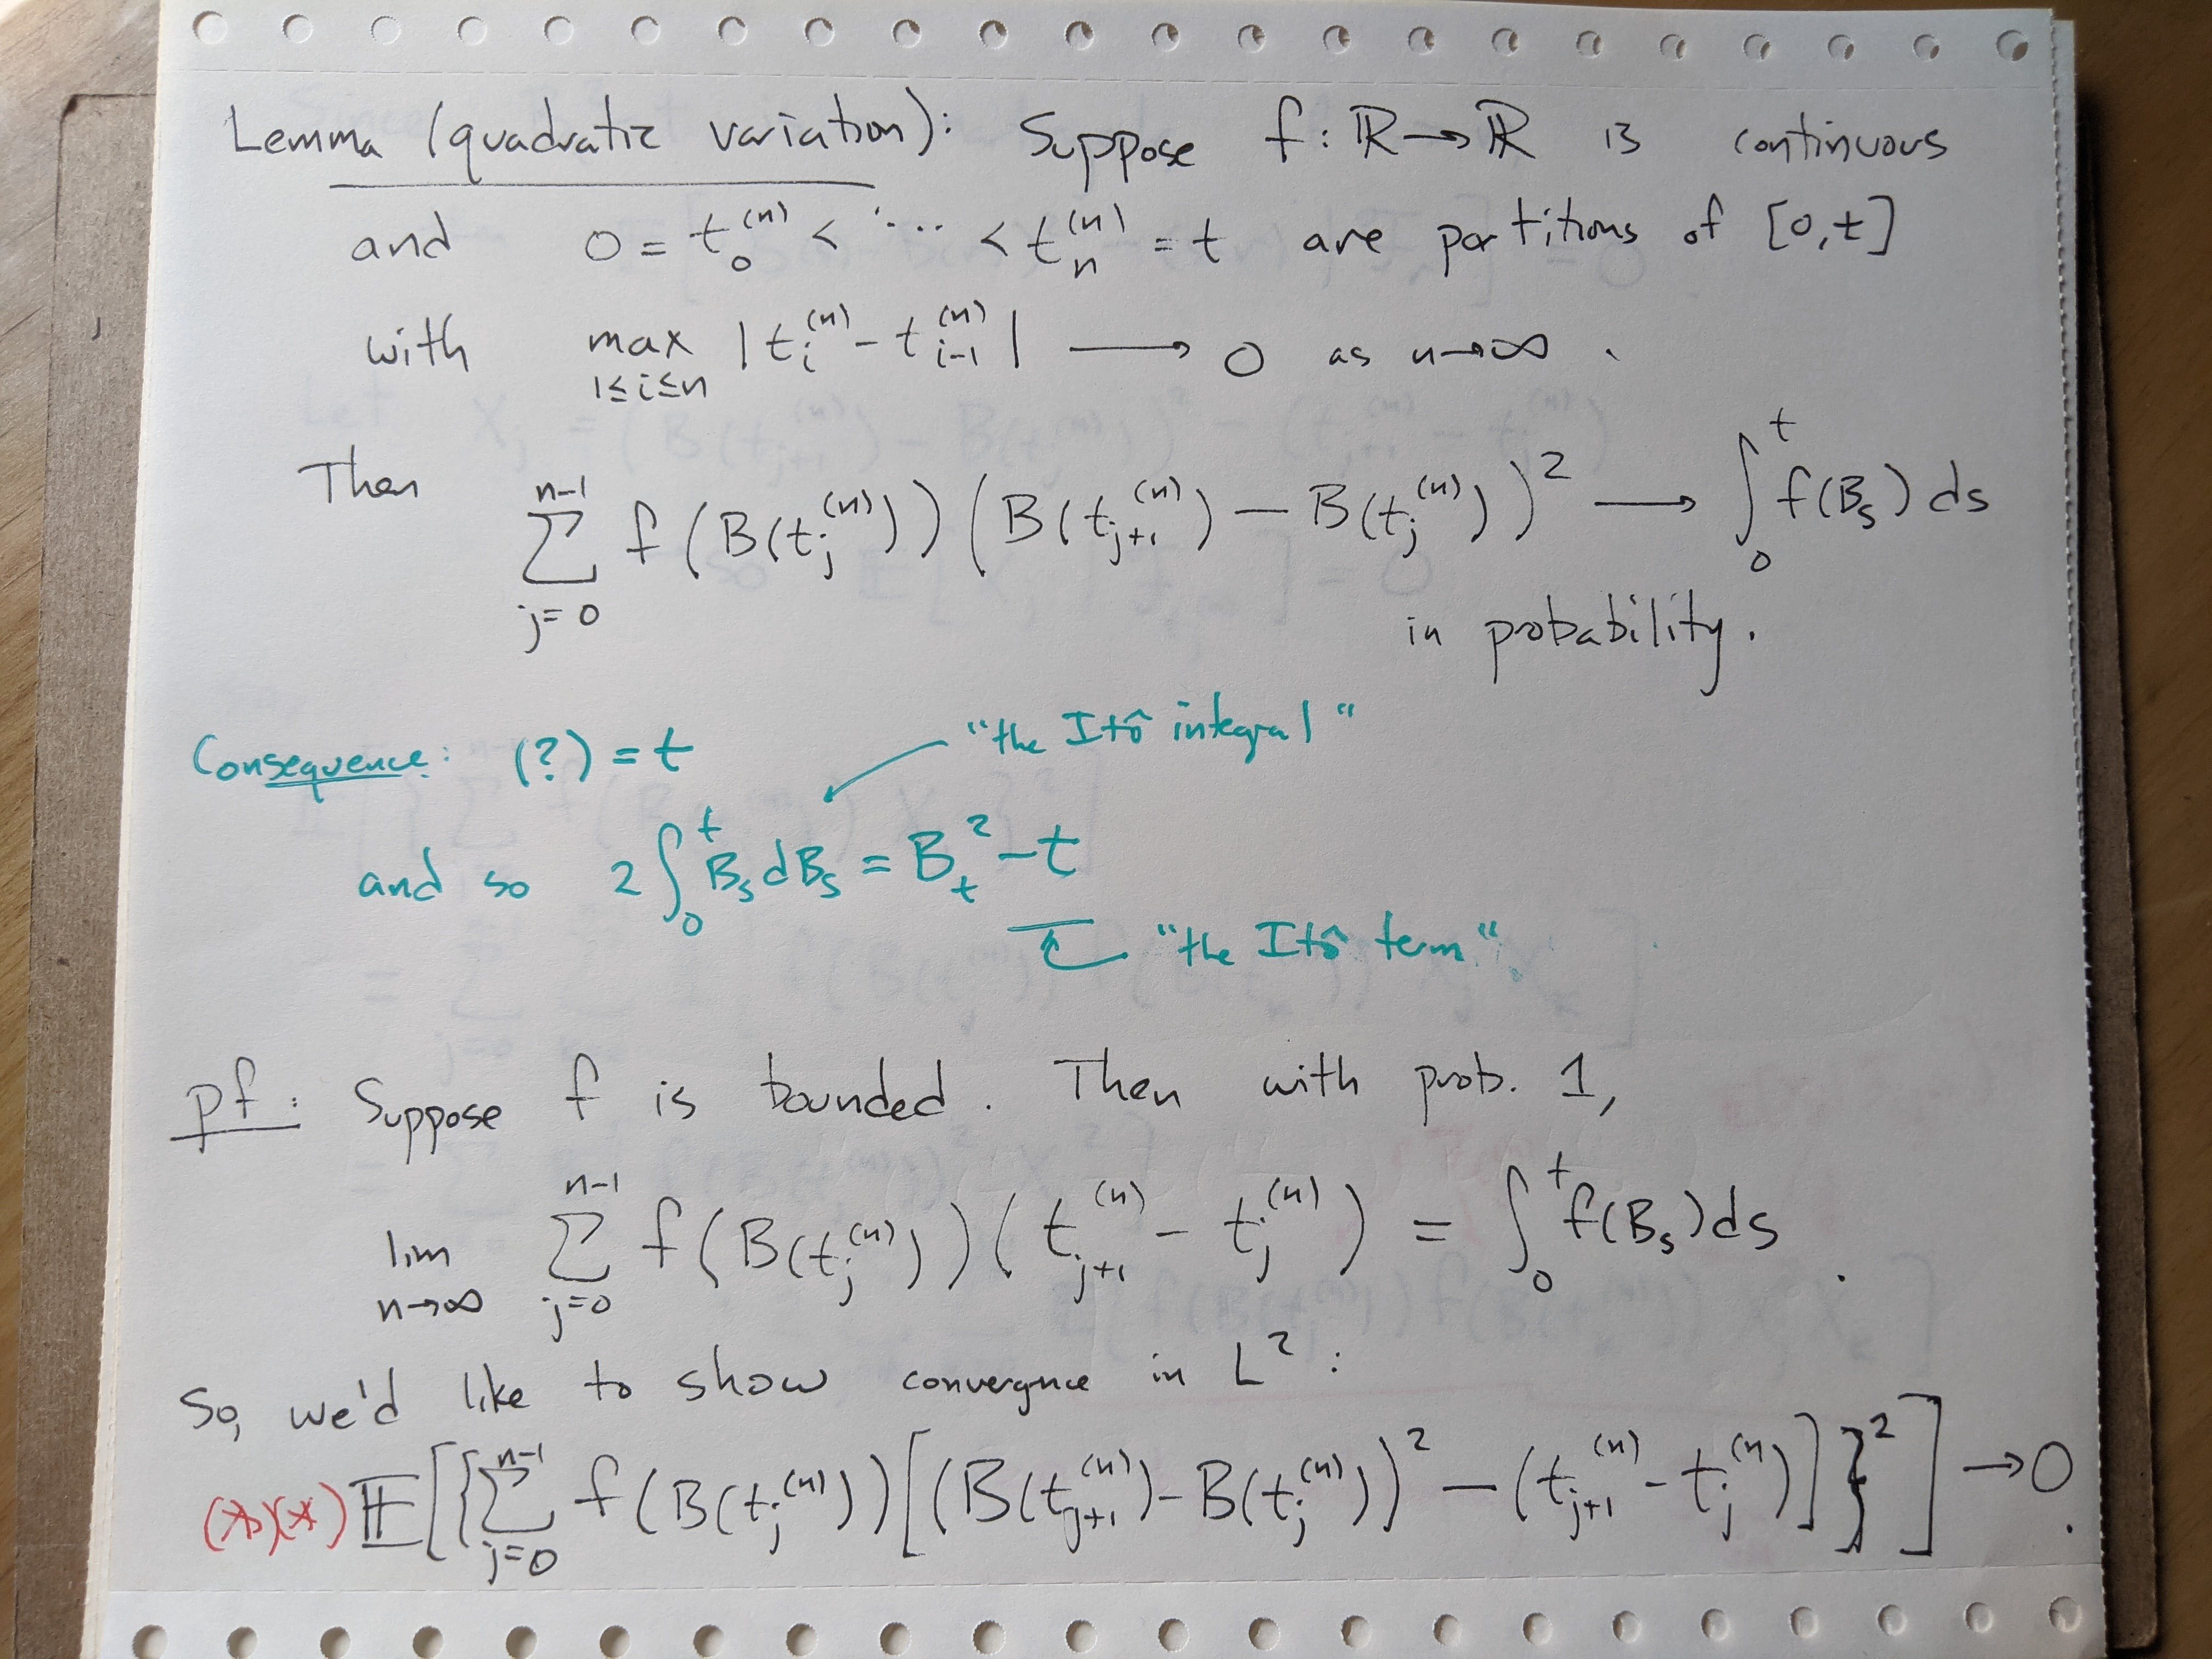 Lemma (quadratic variation): Suppose f: ℝ→ℝ is continuous
and 0 = t_0^{(n)} < ··· < t_n^{(n)} = t are partitions of [0,t]
with max_{1≤i≤n} |t_i^{(n)} - t_{i-1}^{(n)}| ⟶ 0 as n→∞.
Then ∑_{j=0}^{n-1} f(B(t_j^{(n)})) (B(t_{j+1}^{(n)}) - B(t_j^{(n)}))^2 ⟶ ∫_0^t f(B_s) ds
in probability.
Consequence: (?) = t
"the Itô integral"
and so 2∫_0^t B_s dB_s = B_t^2 - t
"the Itô term"
pf: Suppose f is bounded. Then with prob. 1,
lim_{n→∞} ∑_{j=0}^{n-1} f(B(t_j^{(n)})) (t_{j+1}^{(n)} - t_j^{(n)}) = ∫_0^t f(B_s) ds.
So, we'd like to show convergnce in L^2:
(*)(*) 𝔼[{∑_{j=0}^{n-1} f(B(t_j^{(n)})) [(B(t_{j+1}^{(n)}) - B(t_j^{(n)}))^2 - (t_{j+1}^{(n)} - t_j^{(n)})]}^2] → 0.